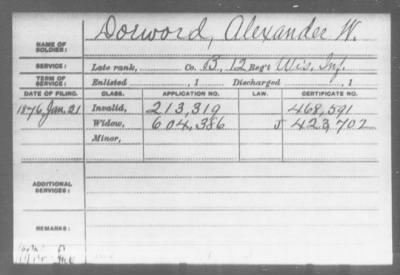 Dorword, Alexander W.
NAME OF SOLDIER:
SERVICE: Late rank, Co. B, 12 Reg't Wis. Inf.
TERM OF SERVICE: Enlisted , 1 Discharged , 1
DATE OF FILING. CLASS. APPLICATION NO. LAW. CERTIFICATE NO.
1876, Jan. 21 Invalid, 213,319 468,591
Widow, 604,386 J 423,702
Minor,
ADDITIONAL SERVICES:
REMARKS: